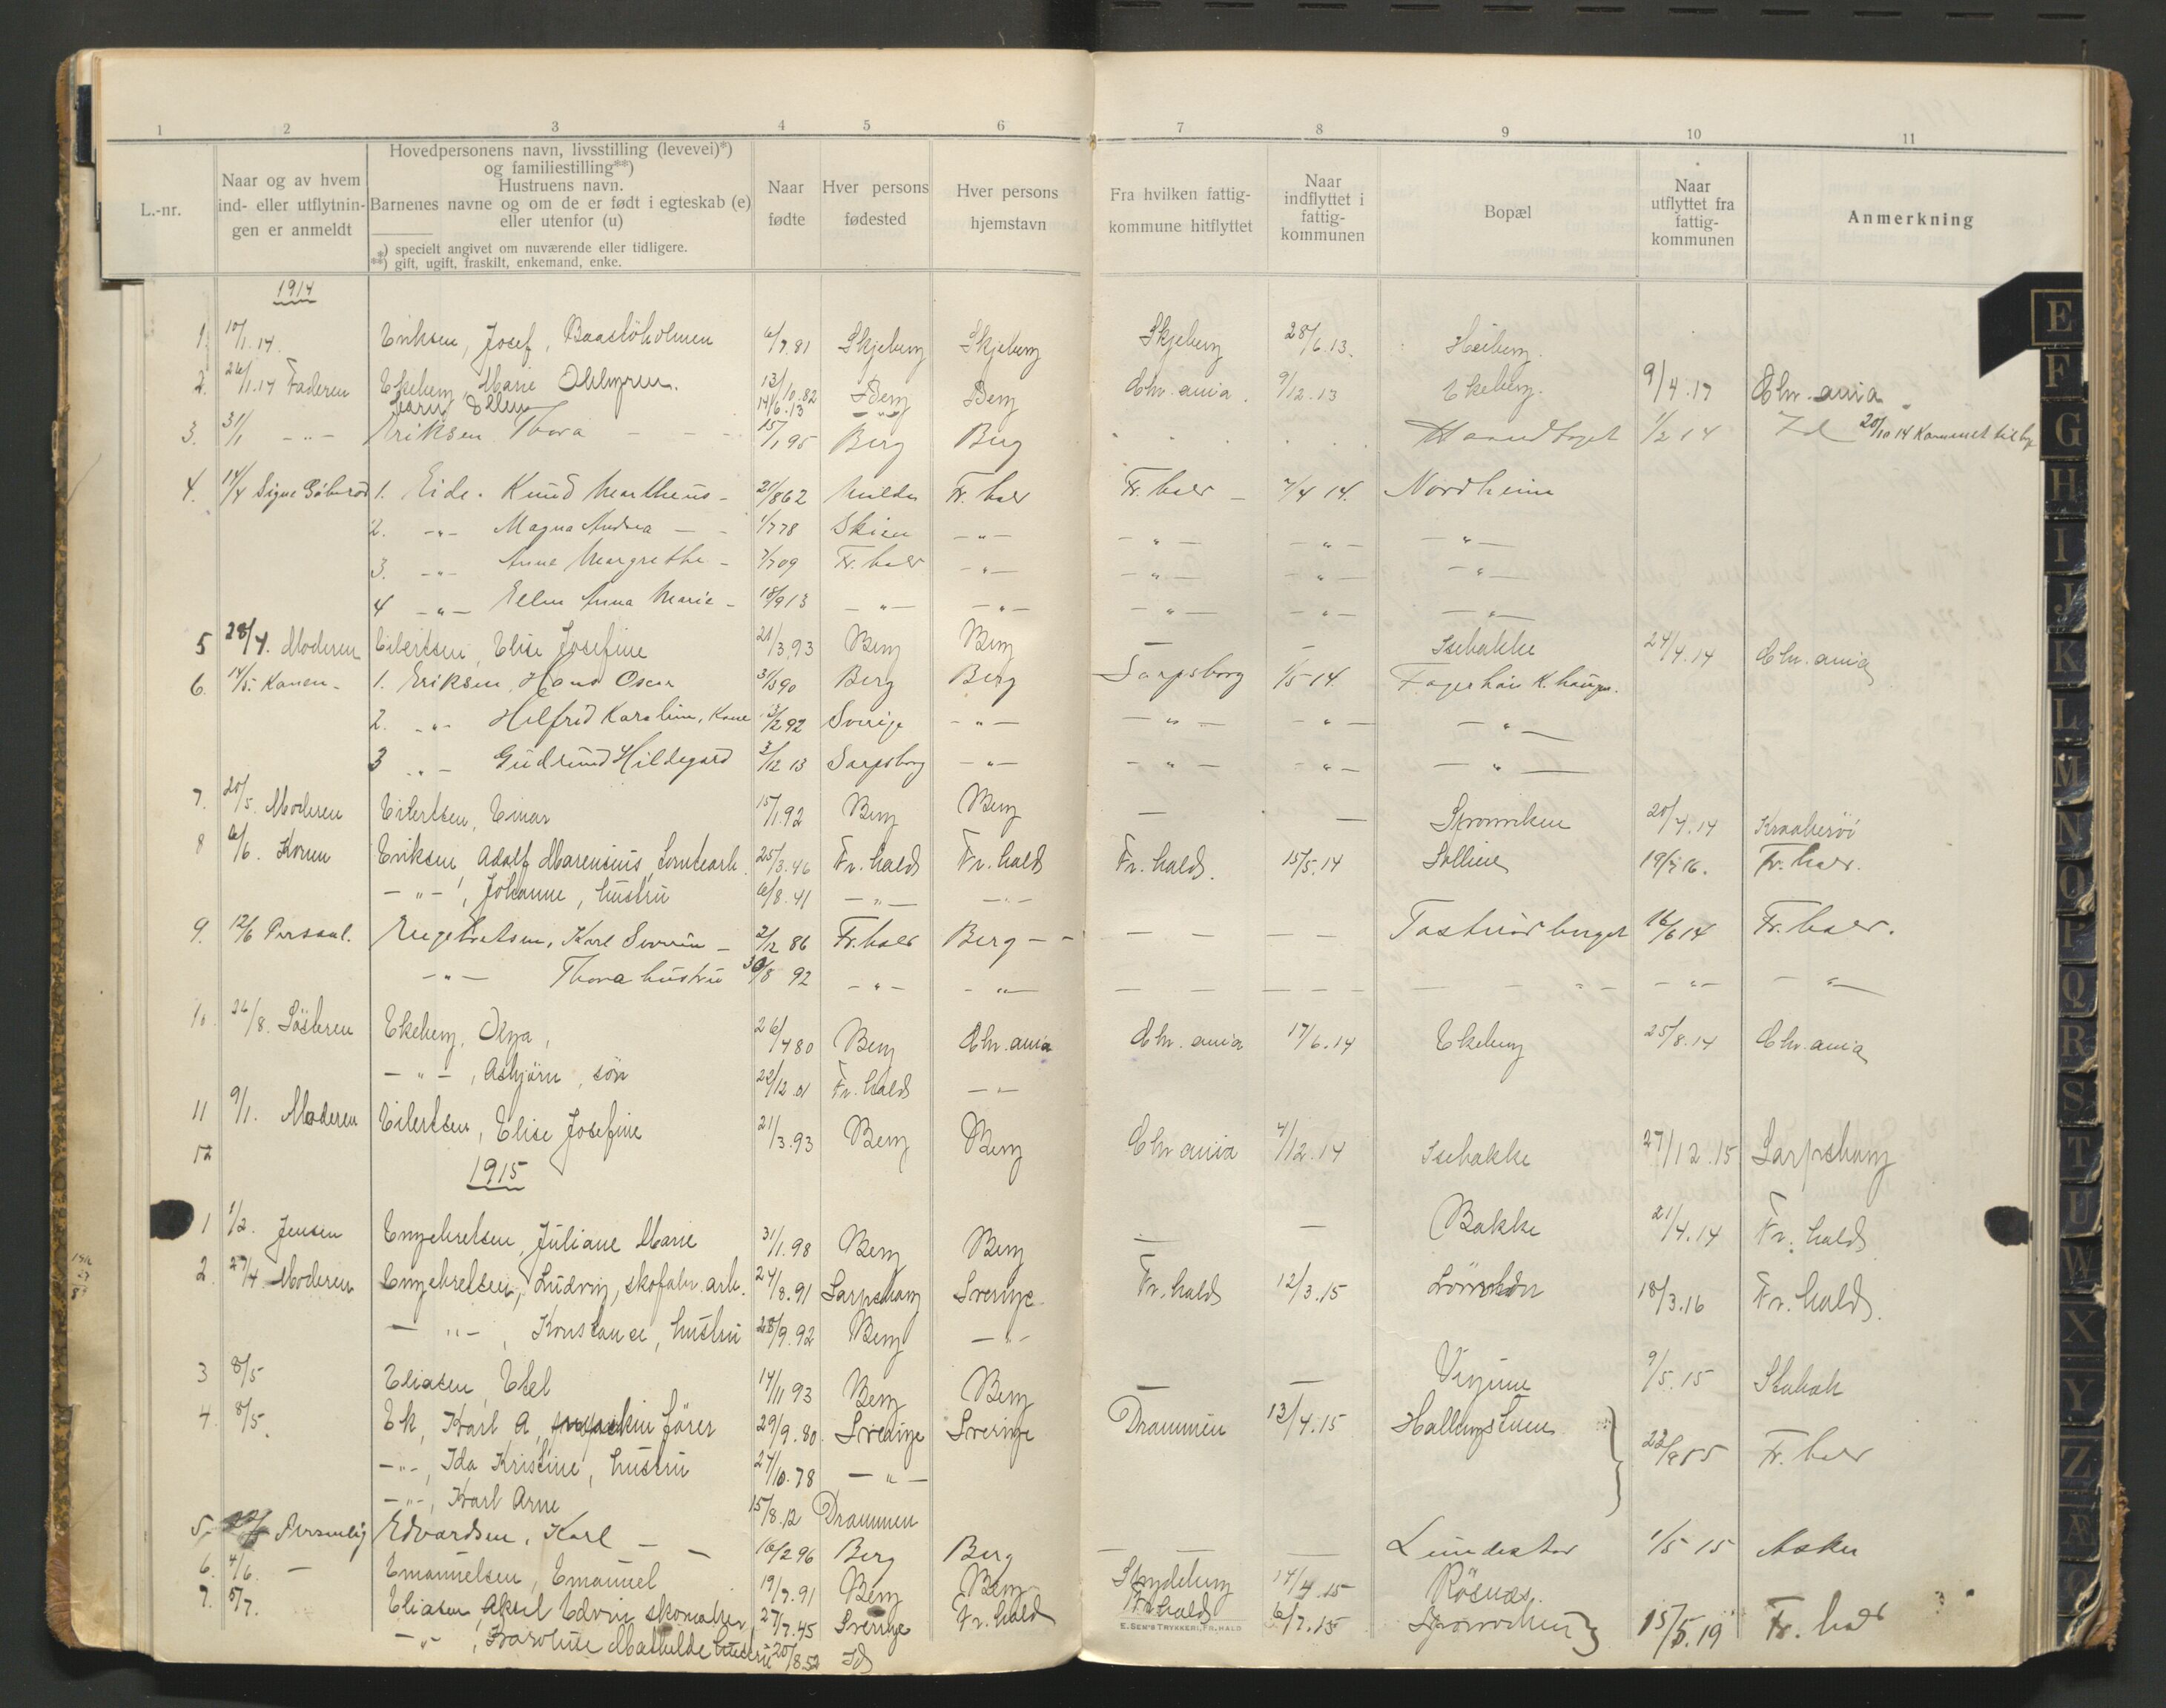 1 2 3 4 5 6 7 8 9 10 11
L.-nr.
Naar og av hvem
ind- eller utflytnin-
gen er anmeldt
Hovedpersonens navn, livsstilling (levevei)*)
og familiestilling**)
Hustruens navn.
Barnenes navne og om de er født i egteskab (e)
eller utenfor (u)
*) specielt angivet om nuværende eller tidligere.
**) gift, ugift, fraskilt, enkemand, enke.
Naar
fødte
Hver persons
fødested
Hver persons
hjemstavn
Fra hvilken fattig-
kommune hitflyttet
Naar
indflyttet i
fattig-
kommunen
Bopæl
Naar
utflyttet fra
fattig-
kommunen
Anmerkning
1914
1. 10/1.14. Eriksen, Josef, 6/7.81 Skjeberg Skjeberg Skjeberg 28/6.13. Heiberg.
2. 26/1.14 Faderen Ekeberg, Marie 13/10.82 Berg Berg Chr.ania. 9/12.13 Ekeberg. 9/4.17 Chr.ania
14/6.13 -"-
3. 31/1 -"- Eriksen Thora - - - 15/1 95 Berg Berg 1/2 14 Id 20/10 14
4. 14/4 Signe 1. Eide. Knud Martheus - 21/8 62 Fr. hald Fr. hald - 7/4 14. Nordheim
2. -"- Magna Andrea - - 1/7 78 Skien -"- -"- -"- -"-
3. -"- Anne Margrethe - 7/7 09 Fr. hald -"- -"- -"- -"-
4 -"- Ellen Anna Marie - 18/9 13 -"- -"- -"- -"- -"-
5 28/4. Moderen Eilertsen, Elise Josefine 21/3.93 Berg Berg - - Isebakke 24/4.14 Chr.ania
6. 14/5. Konen - 1. Eriksen, Hans Oscar 31/3 90 Berg Berg Sarpsborg 1/5 14.
2. -"- Hilfrid Karoline, Kone 3/2 92 Sverige -"- -"- -"- -"-
3 -"- Gudrund Hildegard 3/12 13 Sarpsborg -"- -"- -"- -"-
7. 20/5. Moderen Eilertsen, Einar 15/1.92 Berg Berg - - 20/4.14 Kraakerøi
8 6/6. Konen Eriksen, Adolf Marensius, 25/3.46 Fr. hald Fr. hald Fr. hald. 15/5.14 Sollien 19/7 16. Fr. hald.
-"-, Johanne, hustru 6/8.41 -"- -"-
9. 12/6 Personl. Engebretsen, Karl Severin - 2/12 86 Fr. hald Berg - - - - - - 16/6 14 Fr. hald.
-"- Thora hustru 30/8 92 -"- -"- - - - - - - - -"- -"-
10. 26/8. Søsteren Ekeberg, Olga, 26/4 80 Berg Chr.ania Chr.ania 17/6.14 Ekeberg 25/8.14 Chr.ania
-"-, Asbjørn, søn 22/12.01 Fr. hald -"-
11 9/1. Moderen Eilertsen, Elise Josefine 21/3.93 Berg Berg Chr.ania 4/12.14 Isebakke 27/12.15 Sarpsborg
12
1915
1 1/2. Jensen Engebretsen, Juliane Marie 31/1.98 Berg Berg - - Bakke 21/4.14 Fr. hald.
2. 27/4. Moderen Engebretsen, Ludvig, skofabr.arb. 24/8.91 Sarpsborg Sverige Fr. hald 12/3.15 18/3.16 Fr. hald.
- "-, Konstanse, hustru 28/9.92 Berg -"-
3 8/5 Eliasen, 14/11 93 Berg Berg - - 9/5.15 Skabak
4. 8/5. Ek, Karl A., maskinfører 29/9.80. Sverige Sverige Drammen 13/4.15 22/9 15 Fr. hald
-"-, Ida Kristine, hustru 24/10.78 -"-
-"-, Karl Arne 15/8.12 Drammen
5. Personlig Edvardsen, Karl - - 16/2 96 Berg Berg - - 1/5 15 Asker
6. 4/6. - Emanuelsen, Emanuel 19/7.91 Berg Berg 14/4.15 Røsnæs.
7. 5/7. Eliasen, Aksel Edvin skomaker 27/7.45 Sverige Fr. hald Fr. hald 6/7.15 15/5.19 Fr. hald
-"-, Karoline Mathilde hustru 20/8.52 Id
E. SEM'S TRYKKERI, FR.HALD
E
F
G
H
I
J
K
L
M
N
O
P
Q
R
S
T
U
W
X
Y
Z
Æ
Ø